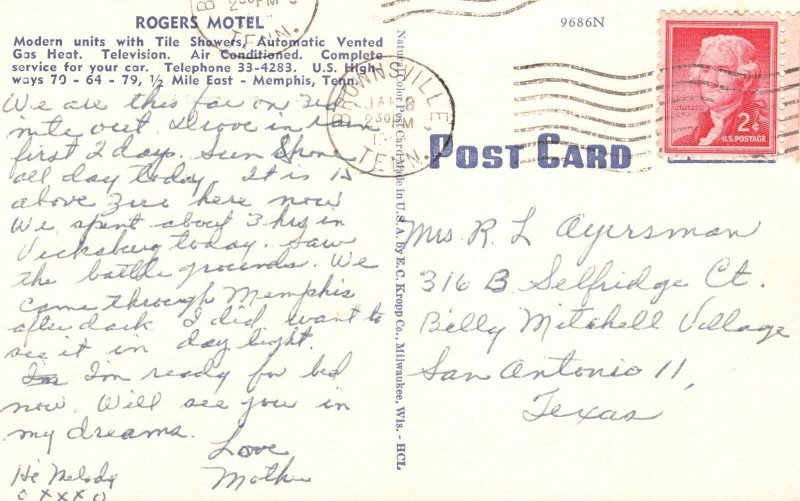 ROGERS MOTEL
Modern units with Tile Showers, Automatic Vented
Gas Heat. Television. Air Conditioned. Complete
service for your car. Telephone 33-4283. U.S. High-
ways 70 - 64 - 79, ½ Mile East - Memphis, Tenn.
We are this far on 3rd
nite out. Drove in rain
first 2 days. Sun Shone
all day today, It is 15
above Zero here now
We spent about 3 hrs in
Vicksburg today. Saw
the battle grounds. We
came through Memphis
after dark I did want to
see it in day light.
I'm ready for bed
now. Will see you in
my dreams.
Love
Mother
Hi Melody
o x x x o
Natural Color Post Card Made in U.S.A. by E. C. Kropp Co., Milwaukee, Wis. - HCL
230PM
TENN.
BROWNSVILLE,
JAN 8
230PM
TENN.
9686N
JEFFERSON
2¢
U.S. POSTAGE
POST CARD
Mrs. R. L. Ayersman
316 B Selfridge Ct.
Billy Mitchell Village
San Antonio 11,
Texas